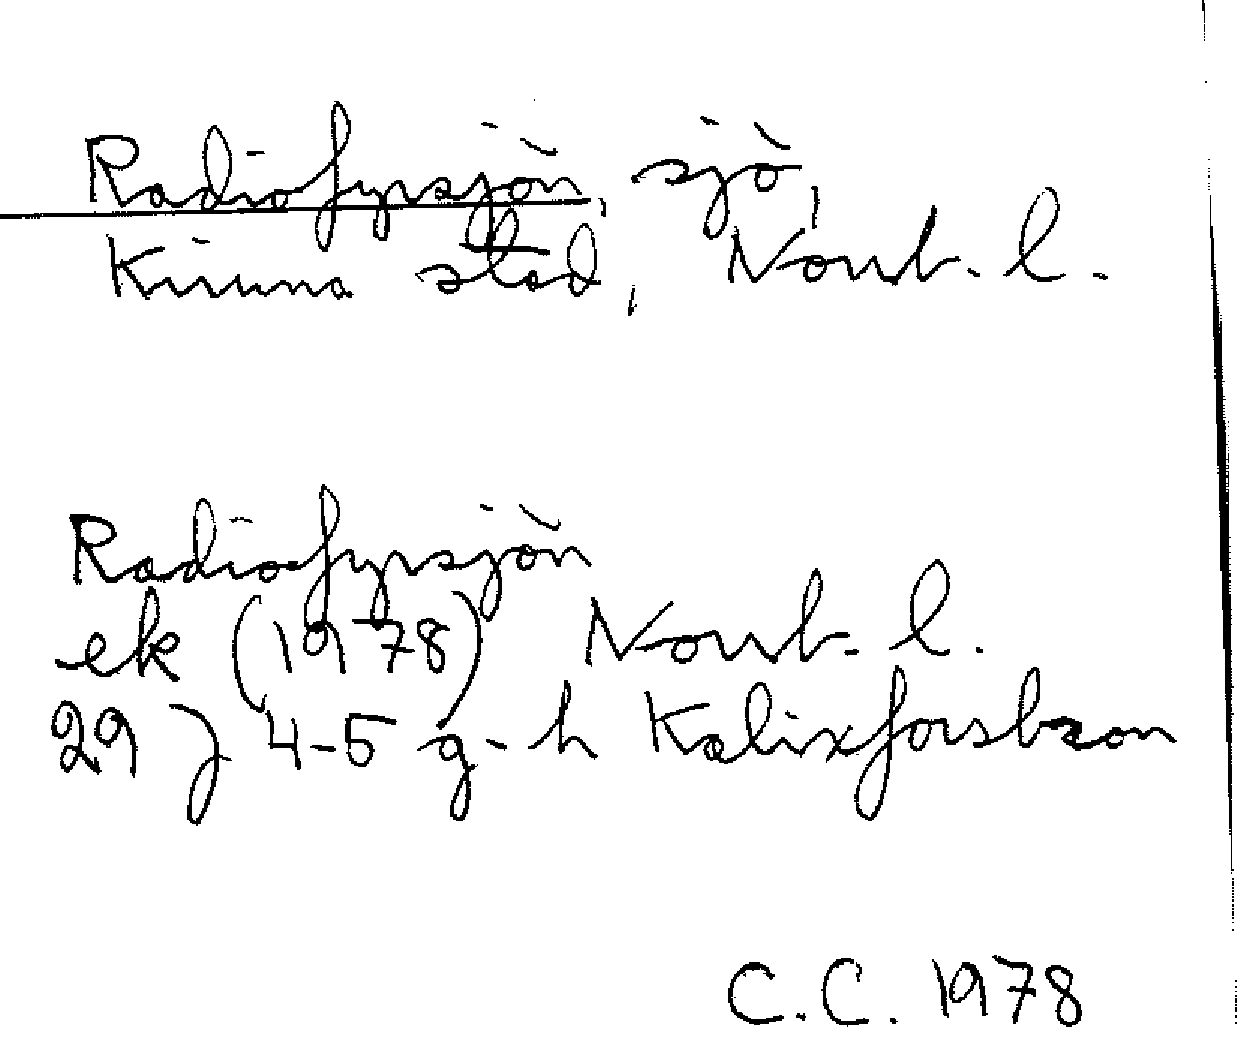 Radiofyrsjön, sjö,
Kiruna stad, Norrb. l.
Radiofyrsjön
ek (1978) Norrb. l.
29 J 4-5 g-h Kalixforsbron
C.C. 1978